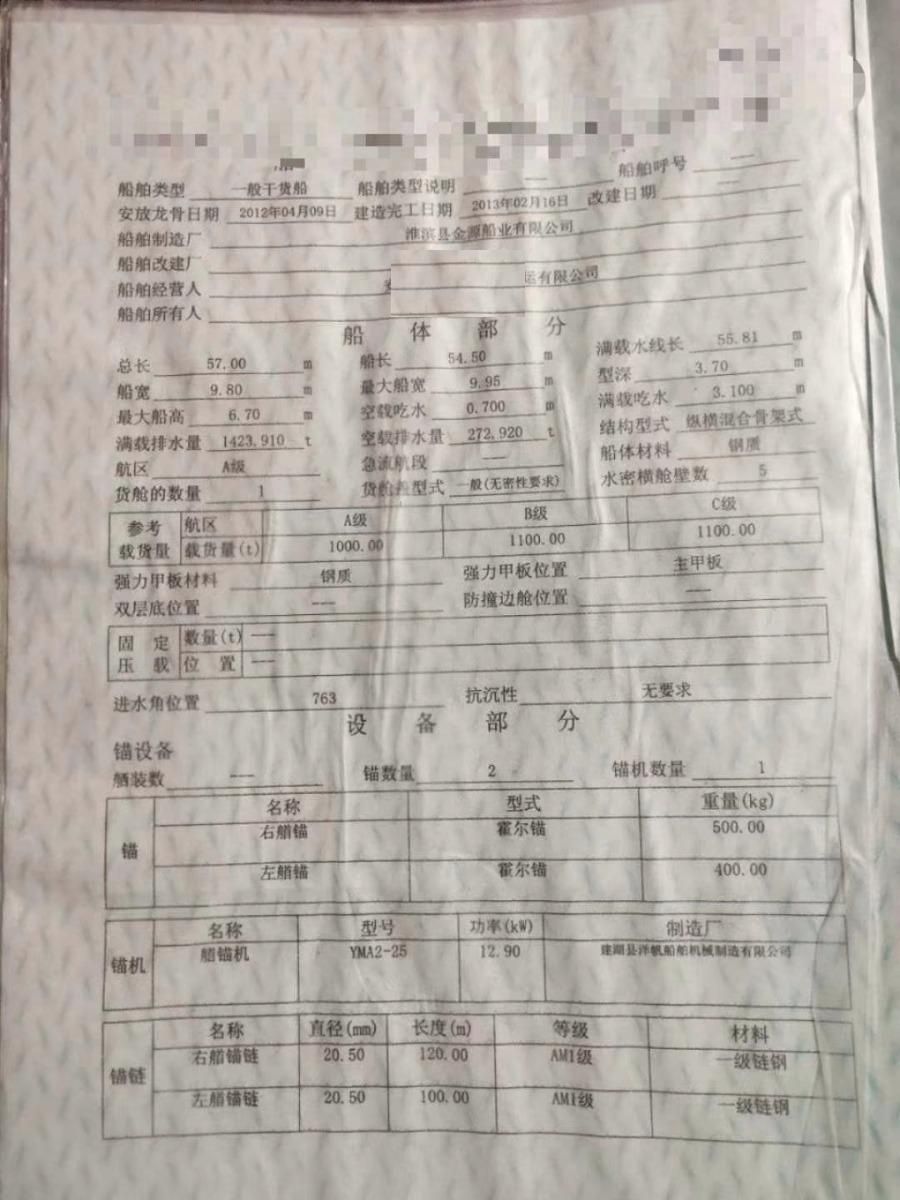 船舶呼号 ---
船舶类型 一般干货船 船舶类型说明 ---
安放龙骨日期 2012年04月09日 建造完工日期 2013年02月16日 改建日期 ---
船舶制造厂 淮滨县金源船业有限公司
船舶改建厂
船舶经营人 运有限公司
船舶所有人
船体部分
总长 57.00 m 船长 54.50 m 满载水线长 55.81 m
船宽 9.80 m 最大船宽 9.95 m 型深 3.70 m
最大船高 6.70 m 空载吃水 0.700 m 满载吃水 3.100 m
满载排水量 1423.910 t 空载排水量 272.920 t 结构型式 纵横混合骨架式
航区 A级 急流航段 --- 船体材料 钢质
货舱的数量 1 货舱盖型式 一般(无密性要求) 水密横舱壁数 5
参考载货量 航区 A级 B级 C级
载货量(t) 1000.00 1100.00 1100.00
强力甲板材料 钢质 强力甲板位置 主甲板
双层底位置 --- 防撞边舱位置 ---
固定压载 数量(t) ---
位置 ---
进水角位置 763 抗沉性 无要求
设备部分
锚设备
舾装数 --- 锚数量 2 锚机数量 1
锚 名称 型式 重量(kg)
右艏锚 霍尔锚 500.00
左艏锚 霍尔锚 400.00
锚机 名称 型号 功率(kW) 制造厂
艏锚机 YMA2-25 12.90 建湖县洋帆船舶机械制造有限公司
锚链 名称 直径(mm) 长度(m) 等级 材料
右艏锚链 20.50 120.00 AM1级 一级链钢
左艏锚链 20.50 100.00 AM1级 一级链钢